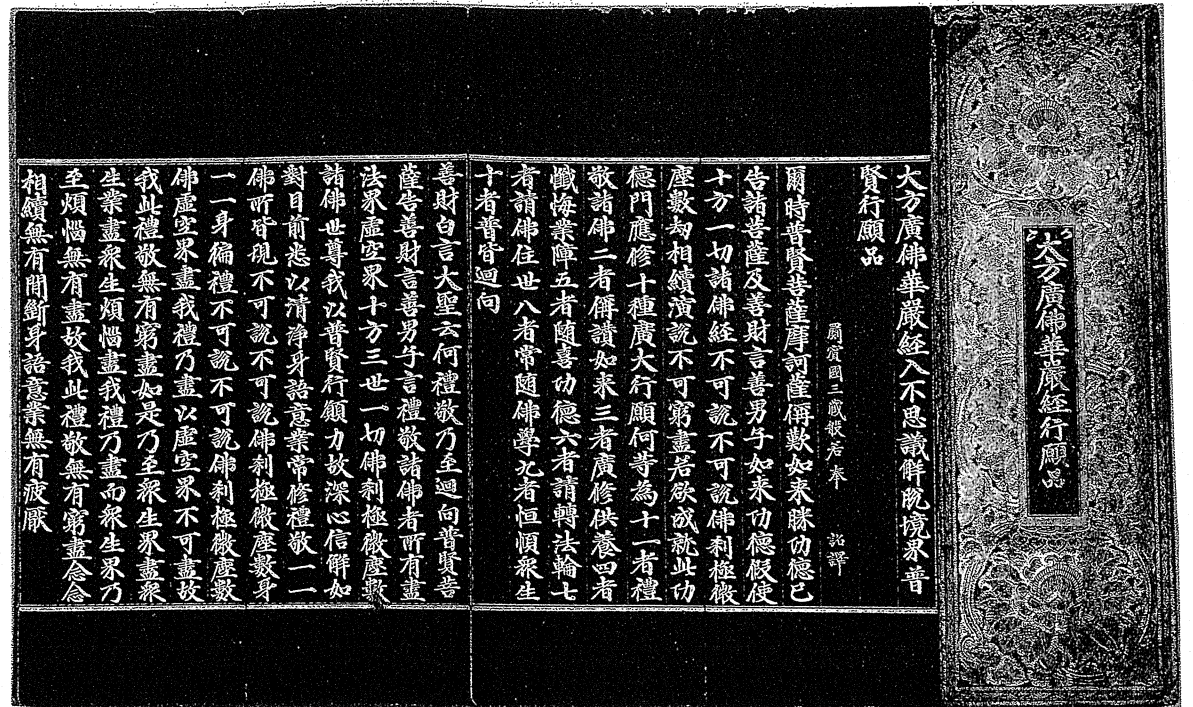 大方廣佛華嚴經行願品
大方廣佛華嚴經入不思議解脫境界普
賢行願品
罽賓國三藏般若奉 詔譯
爾時普賢菩薩摩訶薩稱歎如來勝功德已
告諸菩薩及善財言善男子如來功德假使
十方一切諸佛經不可說不可說佛刹極微
塵數劫相續演說不可窮盡若欲成就此功
德門應修十種廣大行願何等為十一者禮
敬諸佛二者稱讃如来三者廣修供養四者
懺悔業障五者隨喜功德六者請轉法輪七
者請佛住世八者常随佛學九者恒順衆生
十者普皆迴向
善財白言大聖云何禮敬乃至迴向普賢菩
薩告善財言善男子言禮敬諸佛者所有盡
法界虛空界十方三世一切佛刹極微塵數
諸佛世尊我以普賢行願力故深心信解如
對目前悉以清淨身語意業常修禮敬一一
佛所皆現不可說不可說佛刹極微塵數身
一一身徧禮不可說不可說佛刹極微塵數
佛虛空界盡我禮乃盡以虛空界不可盡故
我此禮敬無有窮盡如是乃至衆生界盡衆
生業盡衆生煩惱盡我禮乃盡而衆生界乃
至煩惱無有盡故我此禮敬無有窮盡念念
相續無有間斷身語意業無有疲厭